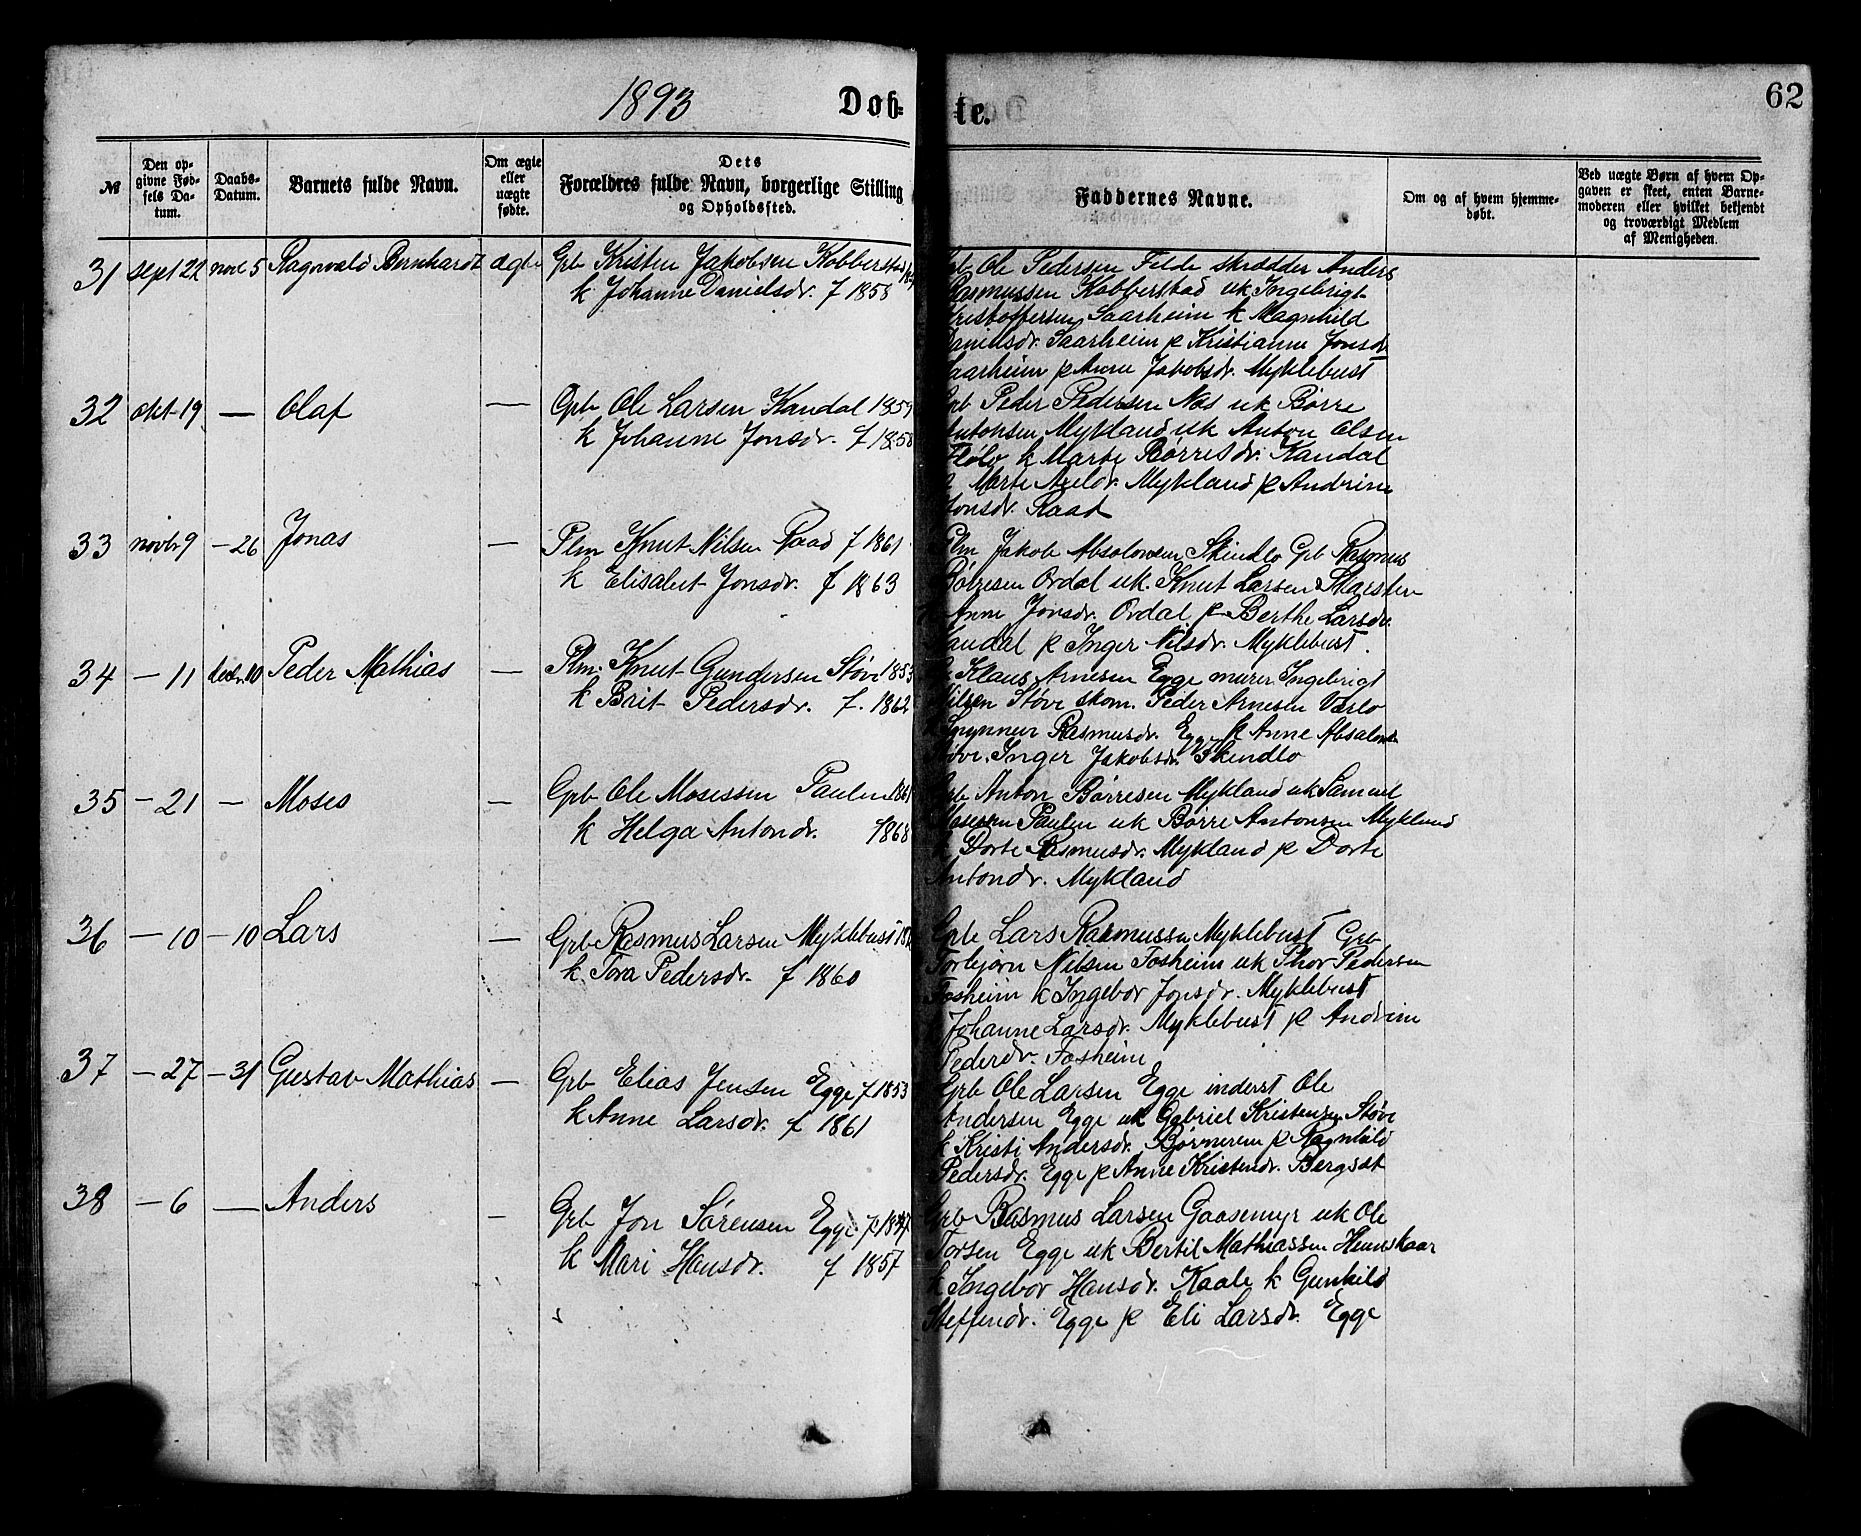 1893
Døb-
te.
62
№
Den op-
givne Fød-
sels Da-
tum.
Daabs-
Datum.
Barnets fulde Navn.
Om ægte
eller
uægte
fødte.
Dets
Forældres fulde Navn, borgerlige Stilling
og Opholdssted.
Faddernes Navne.
Om og af hvem hjemme-
døbt.
Ved uægte Børn af hvem Op-
gaven er skeet, enten Barne-
moderen eller hvilket bekjendt
og troværdigt Medlem
af Menigheden.
31 sept 22 nove 5 Ragnvald Bernhardt ægte Grb Kristen Jakobsen Kobberstad
k Johanne Danielsdr. f 1858
Ole Pedersen Felde skrædder Anders
Rasmussen Kobberstad uk Ingebrigt
Kristoffersen Saarheim k Magnhild
Danielsdr. Saarheim p Kristianne Jonsdr
Saarheim p Anne Jakobsdr. Myklebust
32 okt 19 — Olaf — Grb Ole Larsen Kandal 1859
k Johanne Jonsdr. f 1858
Grb Peder Pedersen Nes uk Børre
Antonsen Mykland uk Anton Olsen
k Marte Børresdr. Kandal
Marte Mykland p Andrine
Jonsdr. Raad
33 novbr 9 — 26 Jonas — Plm Knut Nilsen Raad f 1861
k Elisabet Jonsdr. f 1863
Plm Jakob Absolonsen Skindlo Grb Rasmus
Ordal uk. Knut Larsen Skarsten
Anne Jonsdr. Ordal p Berthe Larsdr.
Kandal p Inger Nilsdr. Myklebust.
34 — 11 decbr. 10 Peder Mathias — Plm. Knut Gundersen Støve 1853
k Brit Pedersdr. f. 1862
Klaus Arnesen Egge murer Ingebrigt
Nilsen Støve skom. Peder Arnesen
Rasmusdr. Egge k Anne Absalonsdr
Støve. Inger Jakobsdr. Skindlo
35 — 21 — Moses — Grb Ole Mosessen Paulen 1861
k Helga Antondr. 1868
Grb Anton Børresen Mykland uk Samuel
Mosesen Paulen uk Børre Antonsen Mykland
k Dorte Rasmusdr. Mykland p Dorte
Antondr. Mykland
36 — 10 — 10 Lars — Grb Rasmus Larsen Myklebust
k. Tora Pedersdr. f 1860
Grb Lars Rasmussen Myklebust Grb
Torbjørn Nilsen Fosheim uk Thor Pedersen
Fosheim k Ingebor Jonsdr. Myklebust
Johanne Larsdr. Myklebust p Andrine
Pedersdr. Fosheim
37 — 27 — 31 Gustav Mathias — Grb Elias Jensen Egge f 1853
k Anne Larsdr. f 1861
Grb Ole Larsen Egge inderst Ole
Andersen Egge uk Gabriel Kristensen Støve
k Kristi Andersdr. p Ragnhild
Pedersdr. Egge p Anne Kristendr. Bergset
38 — 6 — Anders — Grb Jon Sørensen Egge f 1847
k Mari Hansdr. f 1857
Grb Rasmus Larsen Gaasemyr uk Ole
Torsen Egge uk Bertil Mathiassen Hennskaar
k Ingebor Hansdr. Kaale k Gunhild
Steffendr. Egge p Eli Larsdr. Egge